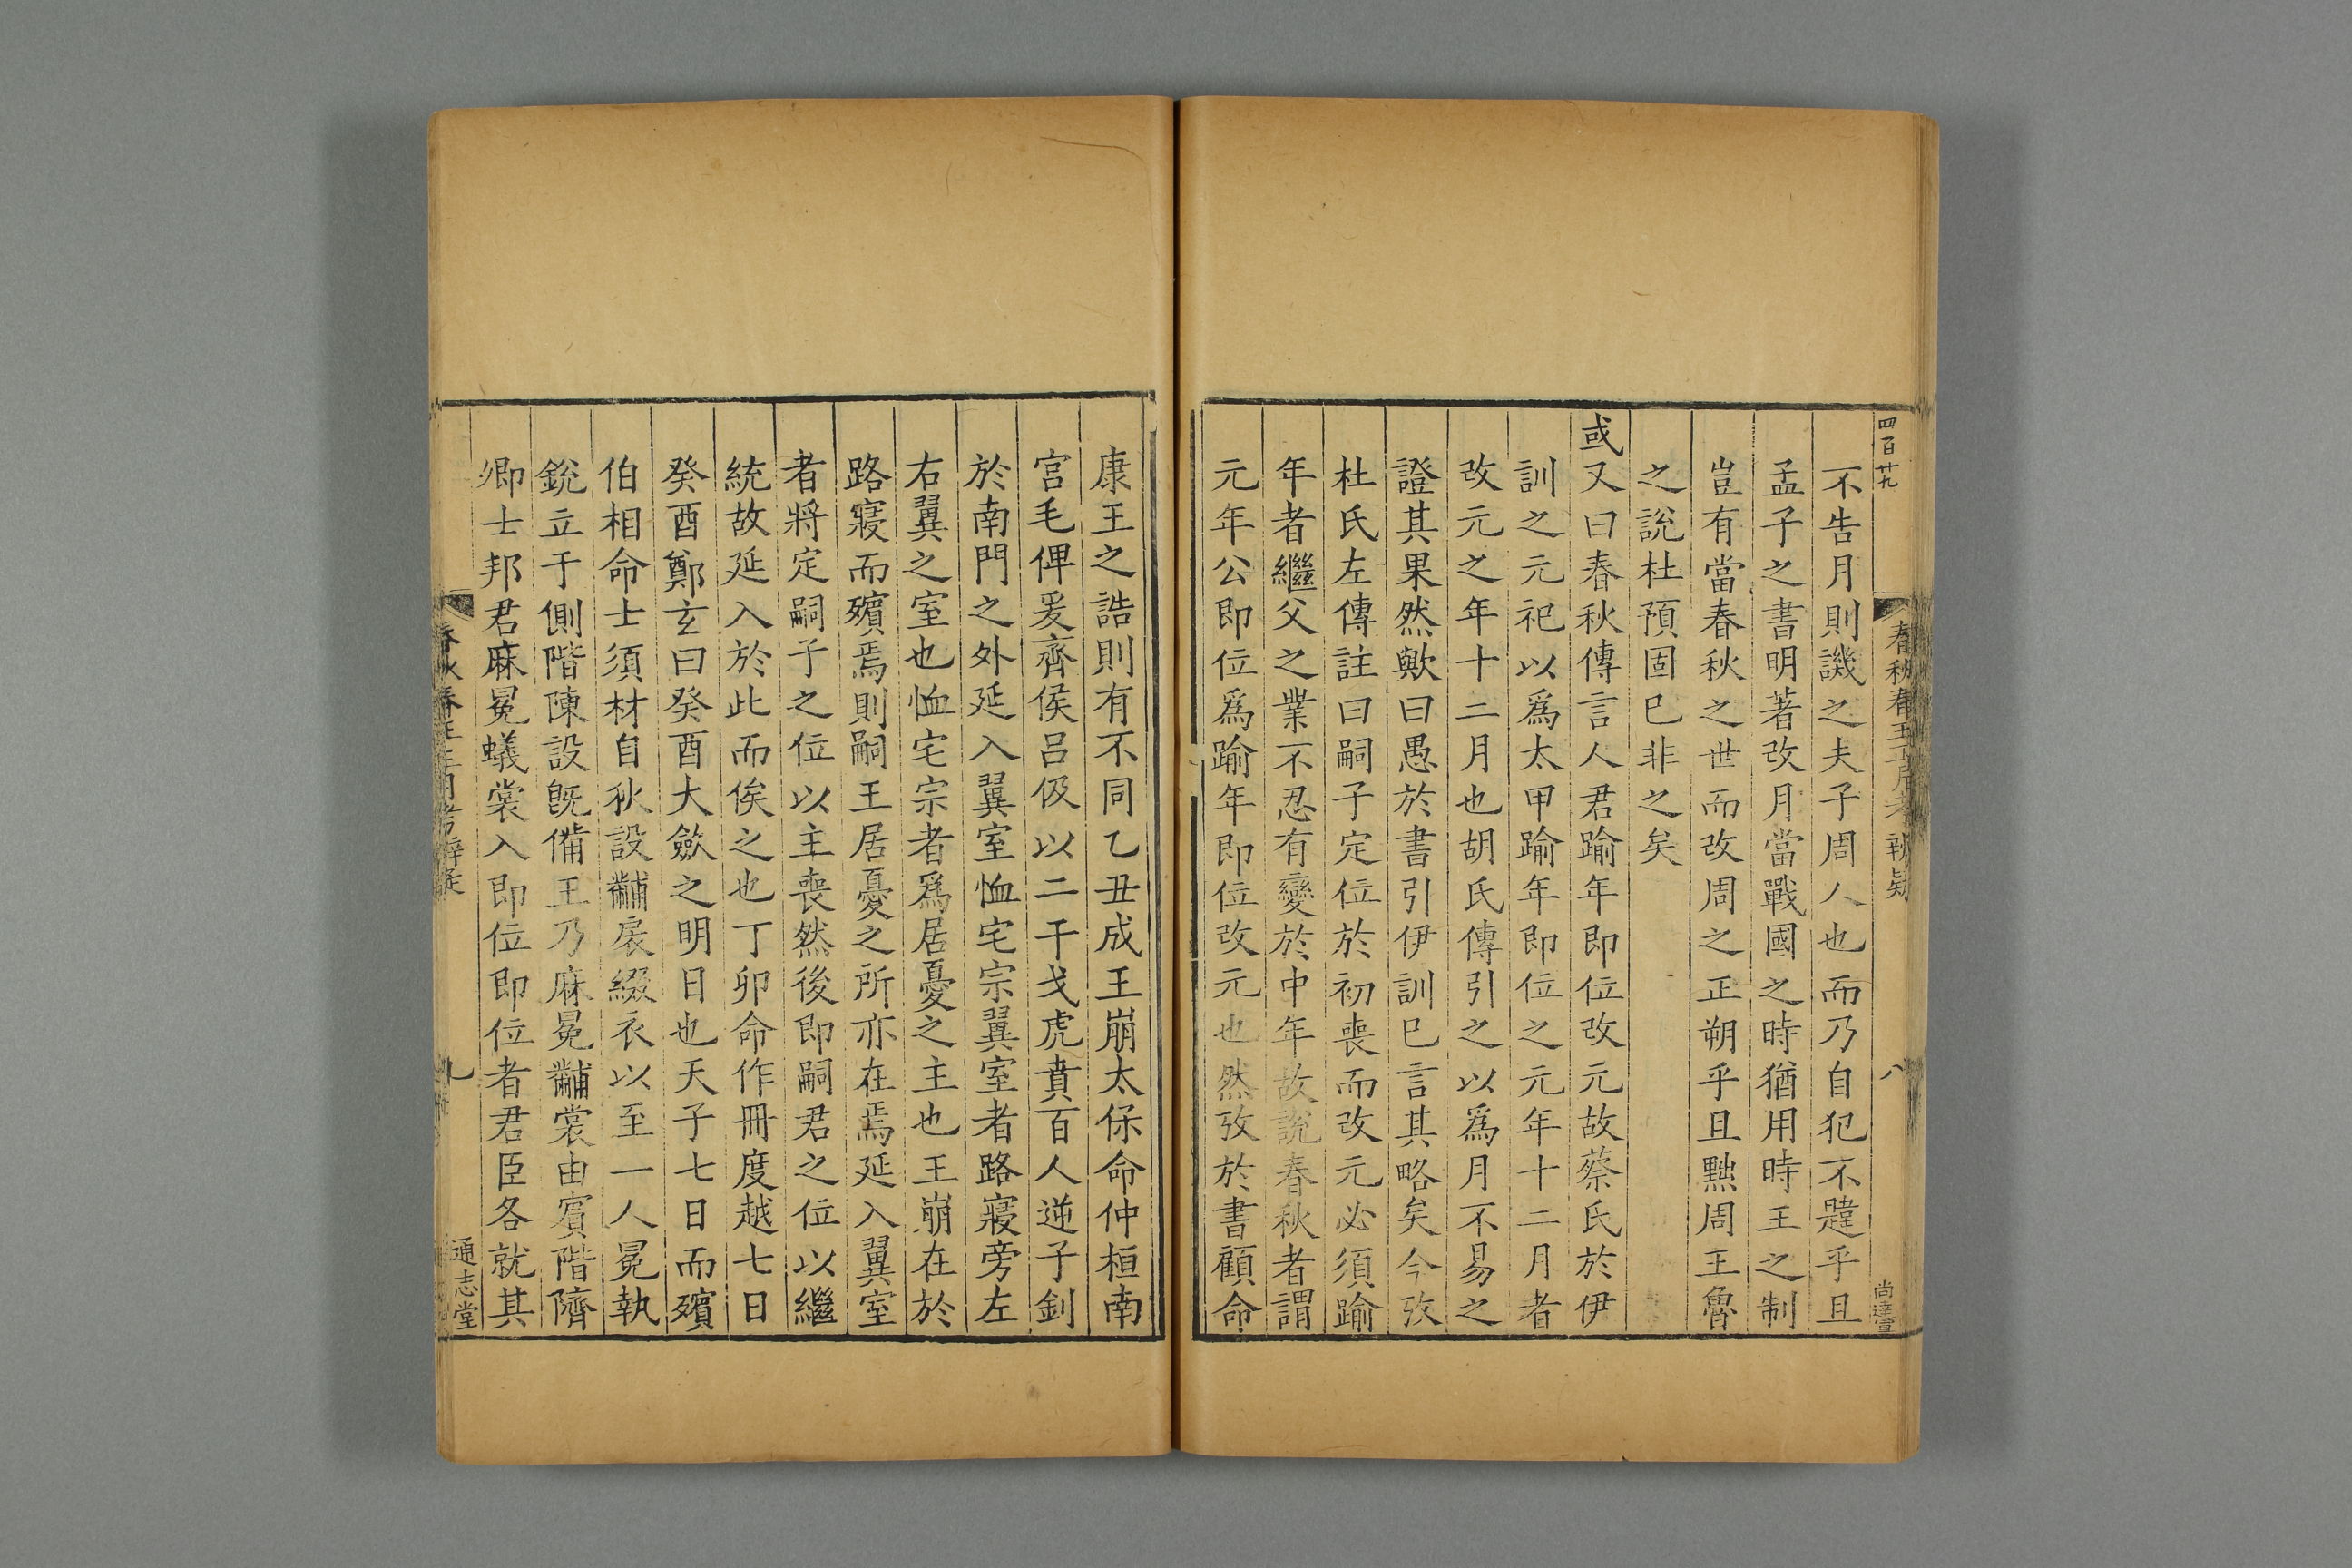 四百廿九
春秋春王正月考 辨疑
八
尚達壹
不告月則譏之夫子周人也而乃自犯不韙乎且
孟子之書明著改月當戰國之時猶用時王之制
豈有當春秋之世而改周之正朔乎且黜周王魯
之說杜預固已非之矣
或又曰春秋傳言人君踰年即位改元故蔡氏於伊
訓之元祀以爲太甲踰年即位之元年十二月者
改元之年十二月也胡氏傳引之以爲月不易之
證其果然歟曰愚於書引伊訓已言其略矣今攷
杜氏左傳註曰嗣子定位於初喪而改元必須踰
年者繼父之業不忍有變於中年故說春秋者謂
元年公即位爲踰年即位改元也然攷於書顧命
康王之誥則有不同乙丑成王崩太保命仲桓南
宮毛俾爰齊侯呂伋以二干戈虎賁百人逆子釗
於南門之外延入翼室恤宅宗翼室者路寢旁左
右翼之室也恤宅宗者爲居憂之主也王崩在於
路寢而殯焉則嗣王居憂之所亦在焉延入翼室
者將定嗣子之位以主喪然後即嗣君之位以繼
統故延入於此而俟之也丁卯命作冊度越七日
癸酉鄭玄曰癸酉大斂之明日也天子七日而殯
伯相命士須材自秋設黼扆綴衣以至一人冕執
銳立于側階陳設旣備王乃麻冕黼裳由賓階隮
卿士邦君麻冕蟻裳入即位即位者君臣各就其
春秋春王正月考辨疑
九
通志堂